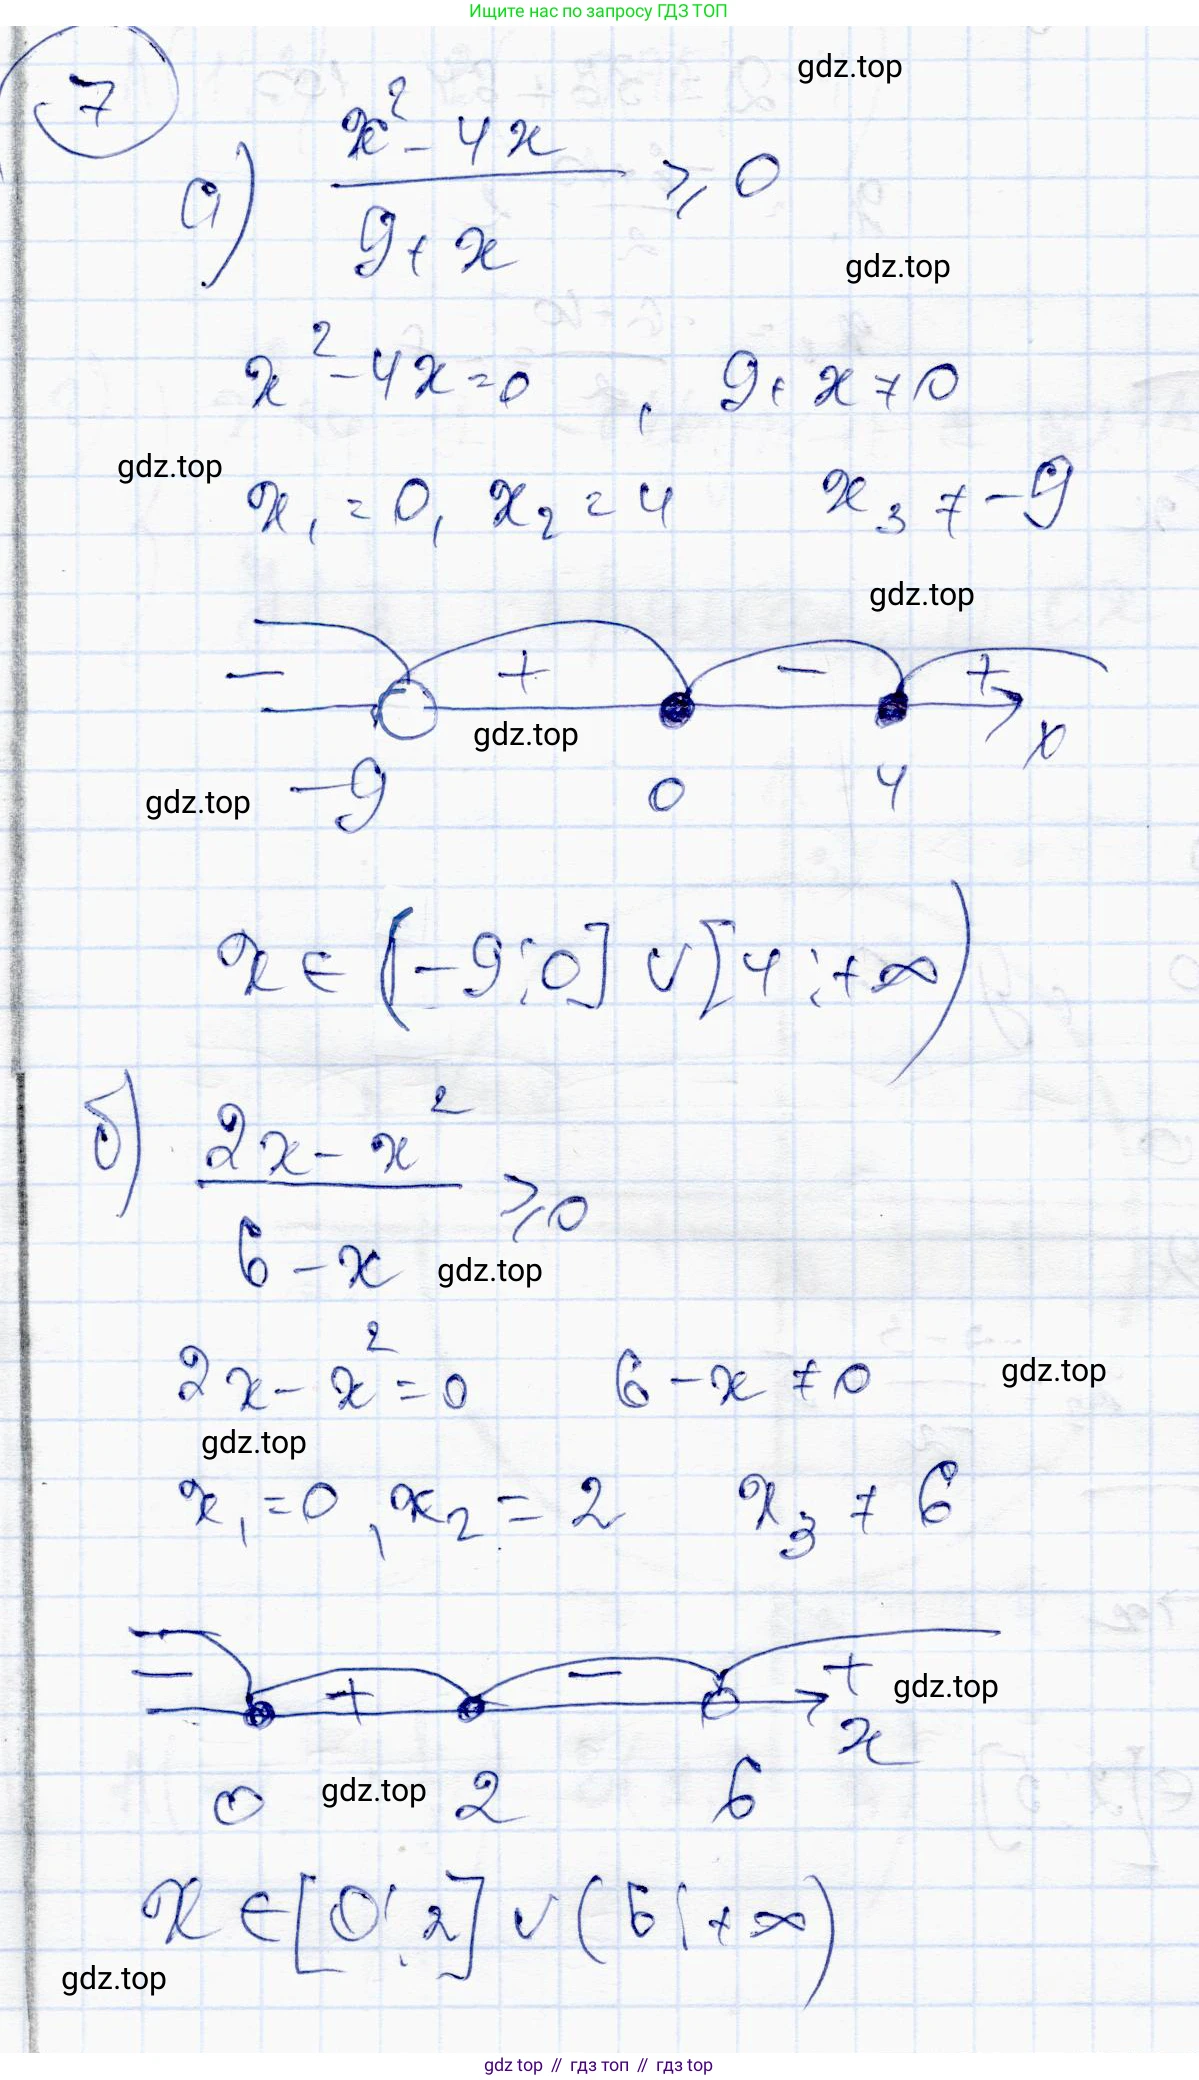 Ищите нас по запросу ГДЗ ТОП
7
gdz.top
а) (x² - 4x)/(9 + x) ⩾ 0
gdz.top
x² - 4x = 0 , 9 + x ≠ 0
gdz.top
x₁ = 0, x₂ = 4 x₃ ≠ -9
gdz.top
- + - +
gdz.top
x
gdz.top
-9 0 4
x ∈ (-9; 0] ∪ [4; +∞)
б) (2x - x²)/(6 - x) ⩾ 0
gdz.top
2x - x² = 0 6 - x ≠ 0
gdz.top
gdz.top
x₁ = 0, x₂ = 2 x₃ ≠ 6
- + - +
gdz.top
x
0 2 6
gdz.top
x ∈ [0; 2] ∪ (6; +∞)
gdz.top
gdz top // гдз топ // гдз top